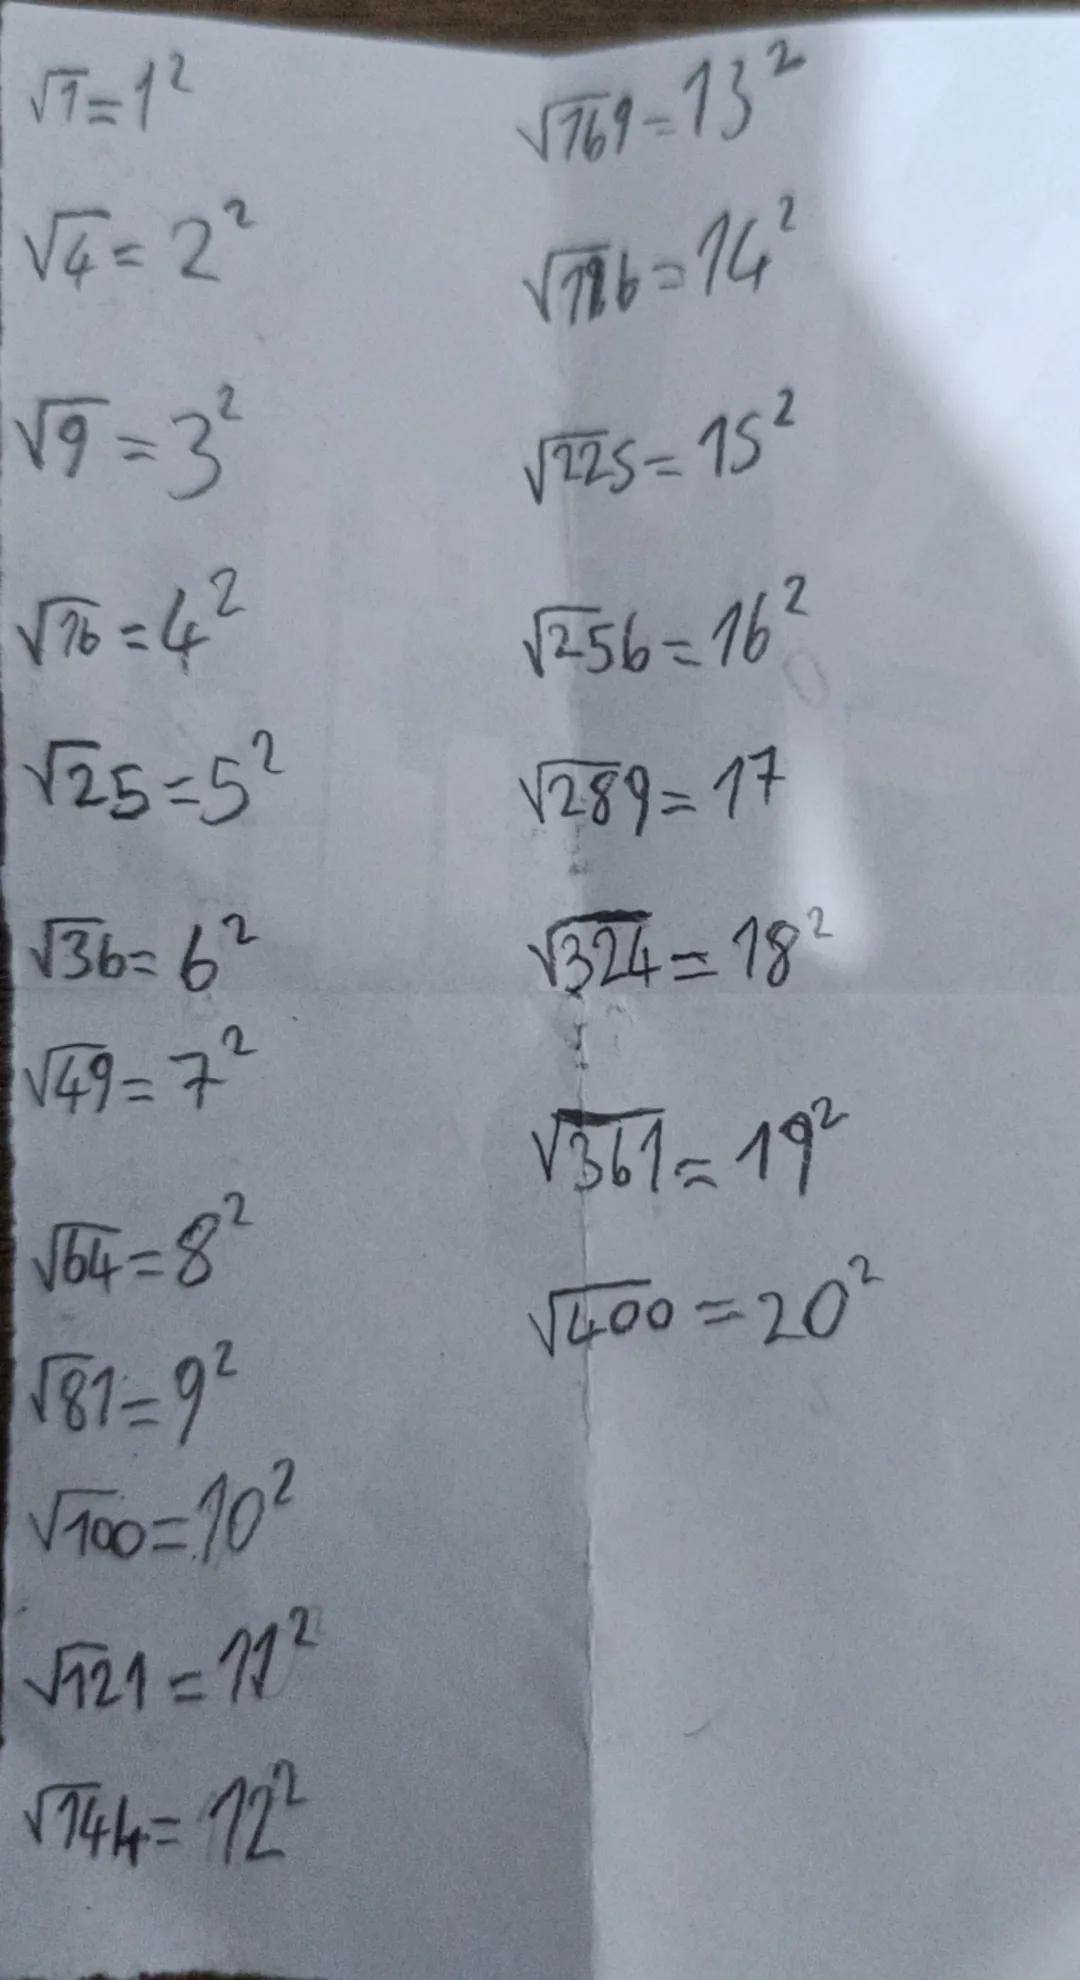 √1=1²
√4=2²
√9=3²
√16=4²
√25=5²
√36=6²
√49=7²
√64=8²
√81=9²
√100=10²
√121=11²
√144=12²
√169=13²
√196=14²
√225=15²
√256=16²
√289=17
√324=18²
√361=19²
√400=20²